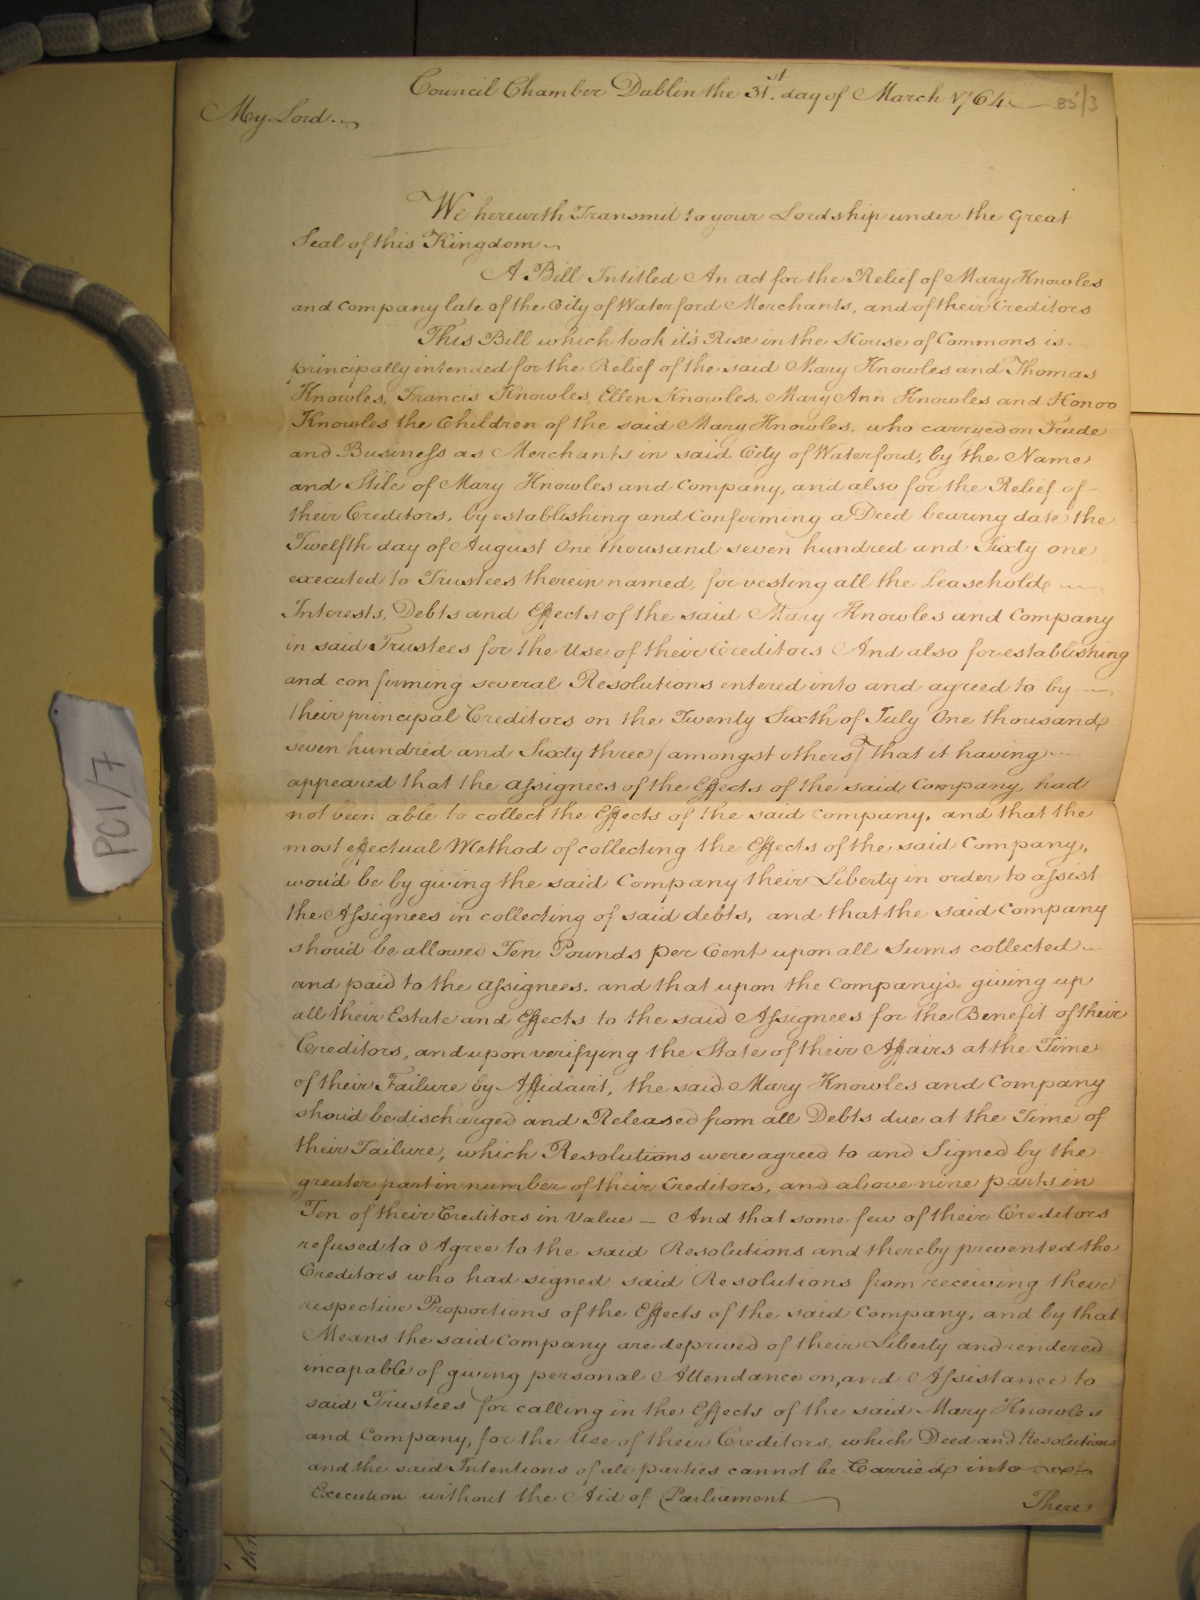 Council Chamber Dublin the 31st. day of March 1764
85/3
My Lord
We herewith Transmit to your Lordship under the Great
Seal of this Kingdom
A Bill Intitled An act for the Relief of Mary Knowles
and Company late of the City of Waterford Merchants, and of their Creditors
This Bill which took it's Rise in the House of Commons is
principally intended for the Relief of the said Mary Knowles and Thomas
Knowles, Francis Knowles, Ellen Knowles, Mary Ann Knowles and Honor
Knowles the Children of the said Mary Knowles, who carryed on Trade
and Business as Merchants in said City of Waterford, by the Name
and Stile of Mary Knowles and Company, and also for the Relief of
their Creditors, by establishing and Confirming a Deed bearing date the
Twelfth day of August One thousand seven hundred and Sixty one
executed to Trustees therein named, for vesting all the Leasehold
Interests, Debts and Effects of the said Mary Knowles and Company
in said Trustees for the Use of their Creditors And also for establishing
and confirming several Resolutions entered into and agreed to by
their principal Creditors on the Twenty Sixth of July One thousand
seven hundred and Sixty three (amongst others) that it having
appeared that the assignees of the Effects of the said Company, had
not been able to collect the Effects of the said Company, and that the
most effectual Method of collecting the Effects of the said Company,
wou'd be by giving the said Company their Liberty in order to assist
the Assignees in collecting of said debts, and that the said Company
shou'd be allowed Ten Pounds per Cent upon all Sums collected
and paid to the assignees, and that upon the Company's giving up
all their Estate and Effects to the said Assignees for the Benefit of their
Creditors, and upon verifying the State of their Affairs at the Time
of their Failure by Affidavit, the said Mary Knowles and Company
shou'd be discharged and Released from all Debts due at the Time of
their Failure, which Resolutions were agreed to and Signed by the
greater part in number of their Creditors, and above nine parts in
Ten of their Creditors in Value — And that some few of their Creditors
refused to Agree to the said Resolutions and thereby prevented the
Creditors who had signed said Resolutions from receiving their
respective Proportions of the Effects of the said Company, and by that
Means the said Company are deprived of their Liberty and rendered
incapable of giving personal Attendance on, and Assistance to
said Trustees for calling in the Effects of the said Mary Knowles
and Company, for the Use of their Creditors, which Deed and Resolutions
and the said Intentions of all parties cannot be Carried into
Execution without the Aid of Parliament
There
PC1/7